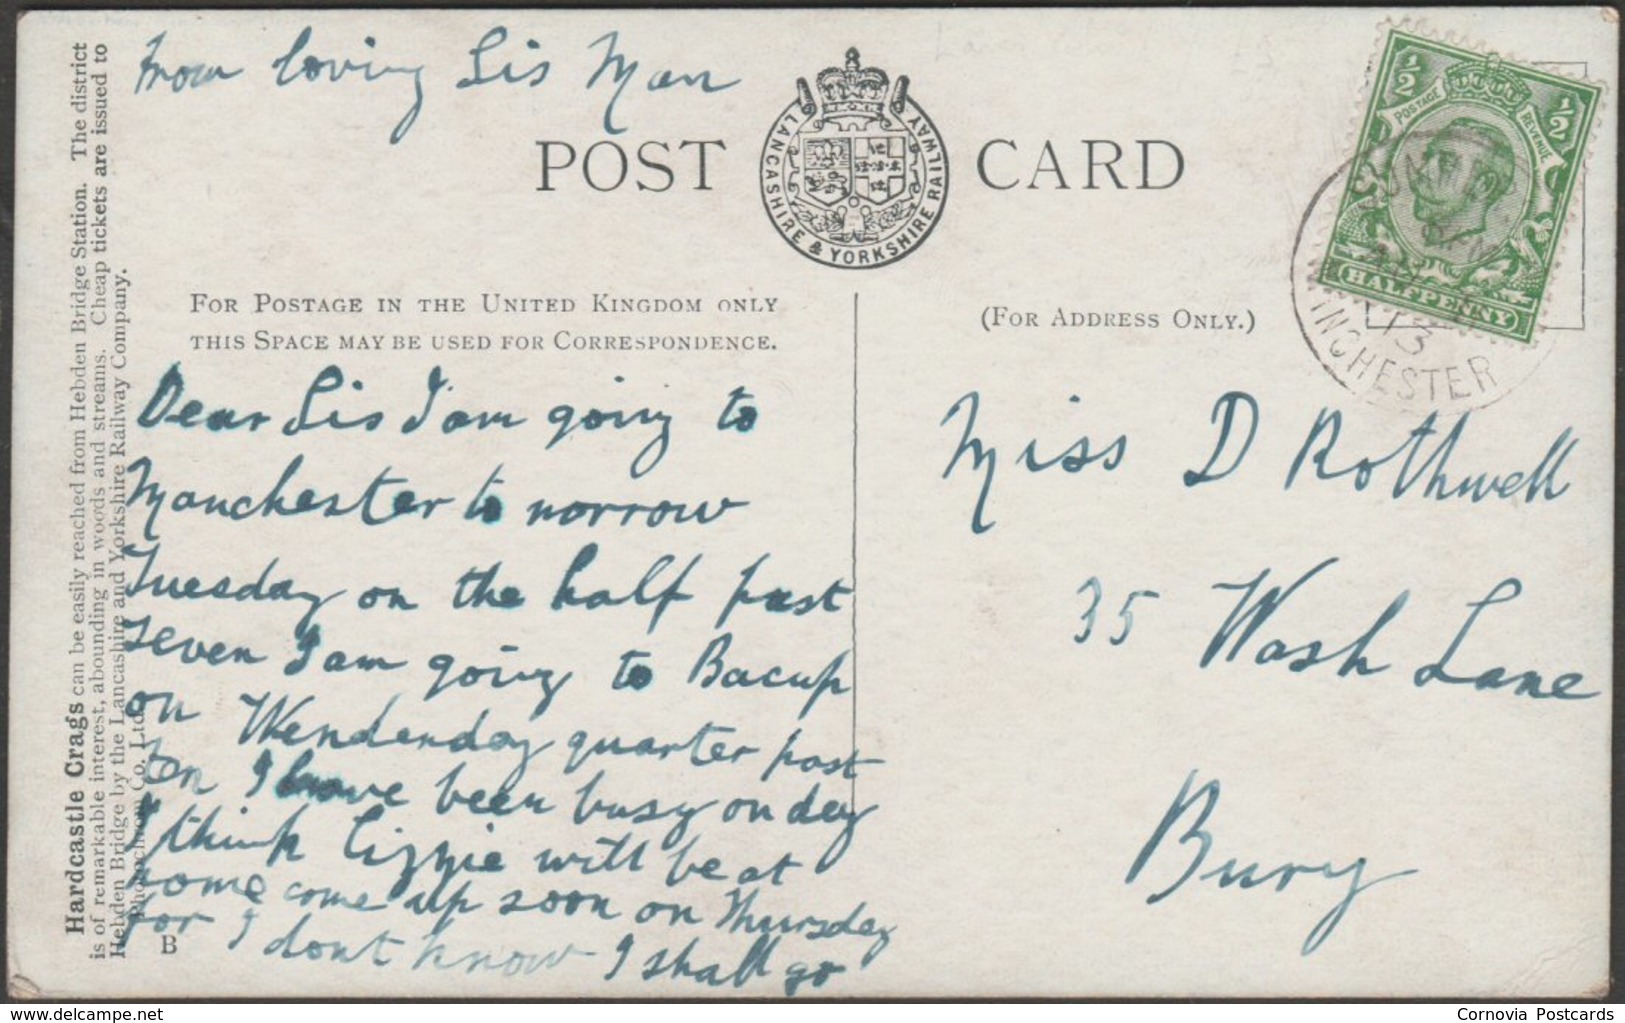 From loving Sis Man
POST CARD
LANCASHIRE & YORKSHIRE RAILWAY
½ ½
POSTAGE REVENUE
HALFPENNY
13
MANCHESTER
FOR POSTAGE IN THE UNITED KINGDOM ONLY
THIS SPACE MAY BE USED FOR CORRESPONDENCE.
(FOR ADDRESS ONLY.)
Dear Sis I am going to
Manchester to norrow
Tuesday on the half past
seven I am going to Bacup
on Wendenday quarter past
ten I have been busy on day
I think Lizzie will be at
home come up soon on Thursday
for I dont know I shall go
Miss D Rothwell
35 Wash Lane
Bury
Hardcastle Crags can be easily reached from Hebden Bridge Station. The district
is of remarkable interest, abounding in woods and streams. Cheap tickets are issued to
Hebden Bridge by the Lancashire and Yorkshire Railway Company.
Photochrom Co. Ltd.
B
www.delcampe.net
Cornovia Postcards